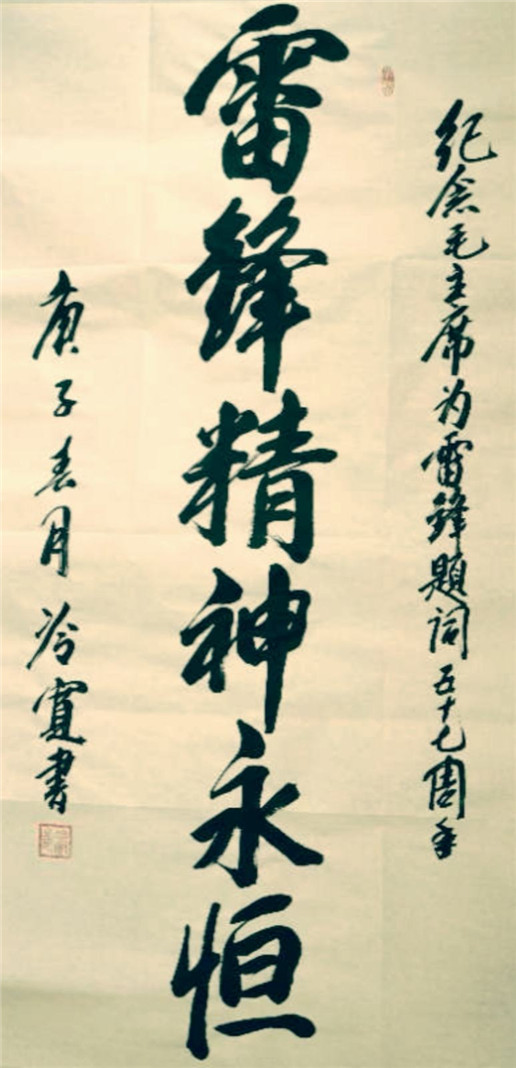 纪念毛主席为雷锋题词五十七周年
雷锋精神永恒
庚子春月冷寛書